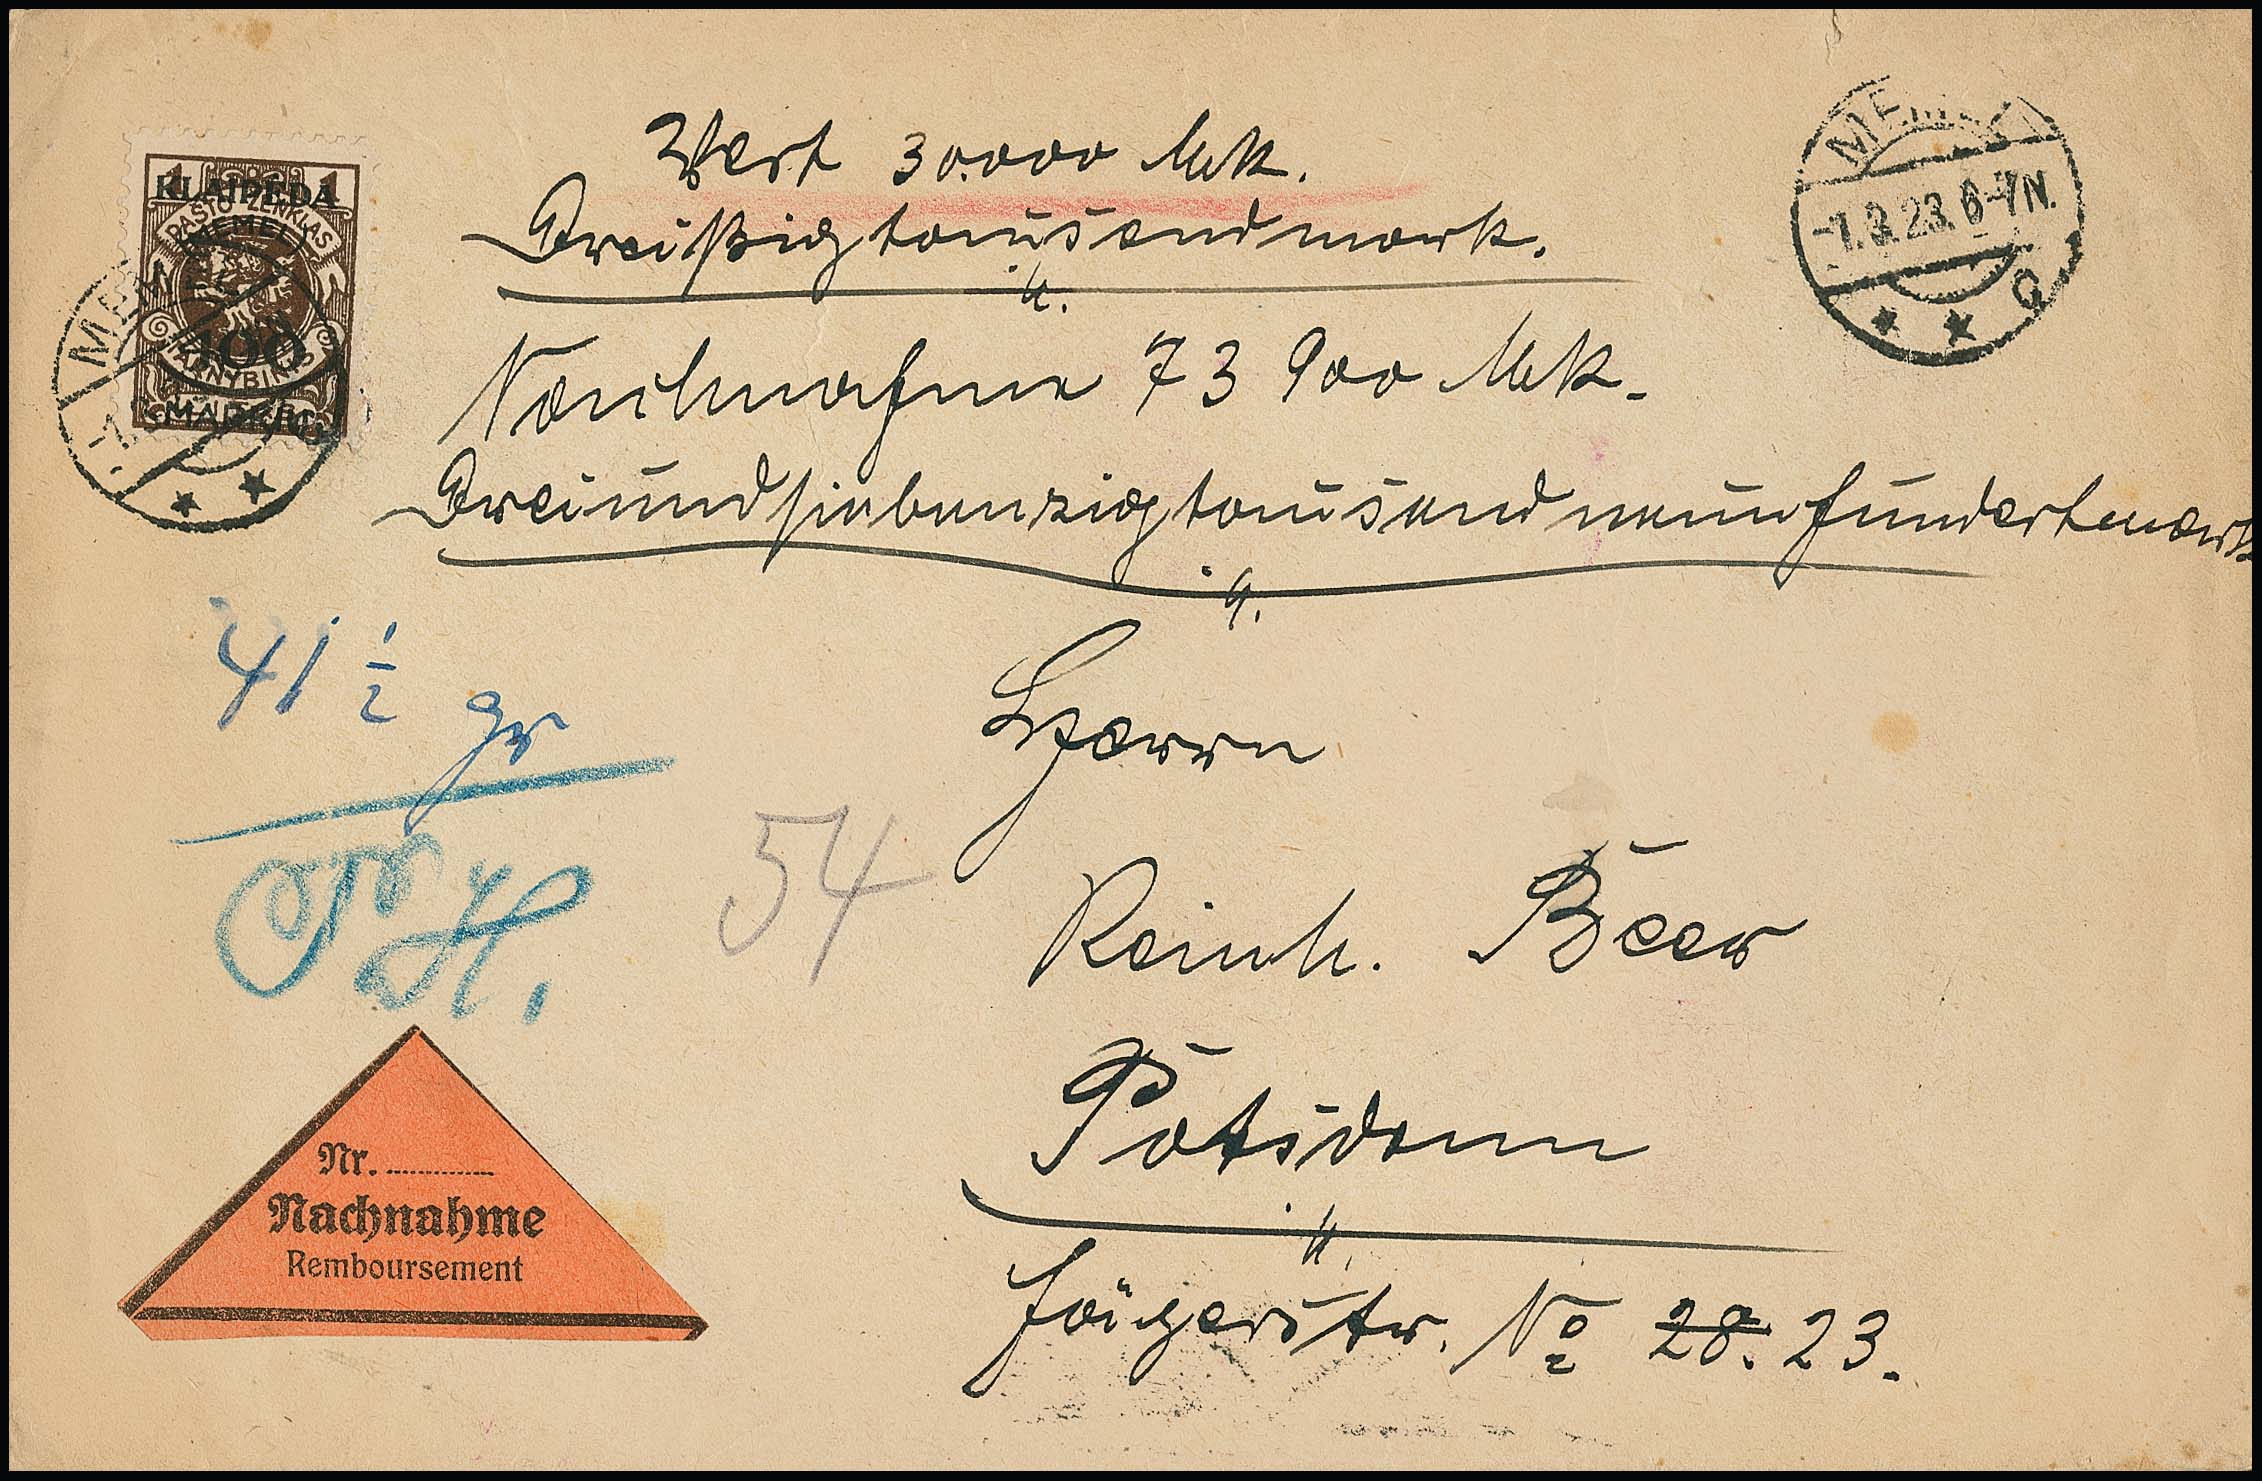 1 1
KLAIPEDA
PASTO ZENKLAS
(MEMEL)
100
TARNYBINIS
MARKIU
MEMEL
-7.3.23.6-7N.
* * a
Wert 30.000 Mk.
Dreißigtausendmark.
Nachnahme 73 900 Mk.
Dreiundsiebenzigtausendneunhundertmark
41 1/2 gr
54
Herrn
Reinh. Beer
Potsdam
Jägerstr. No 28. 23.
Nr.
Nachnahme
Remboursement